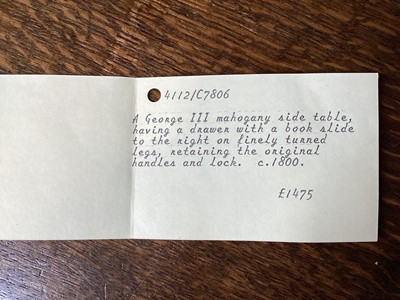 4112/C7806
A George III mahogany side table,
having a drawer with a book slide
to the right on finely turned
legs, retaining the original
handles and lock. c.1800.
£1475